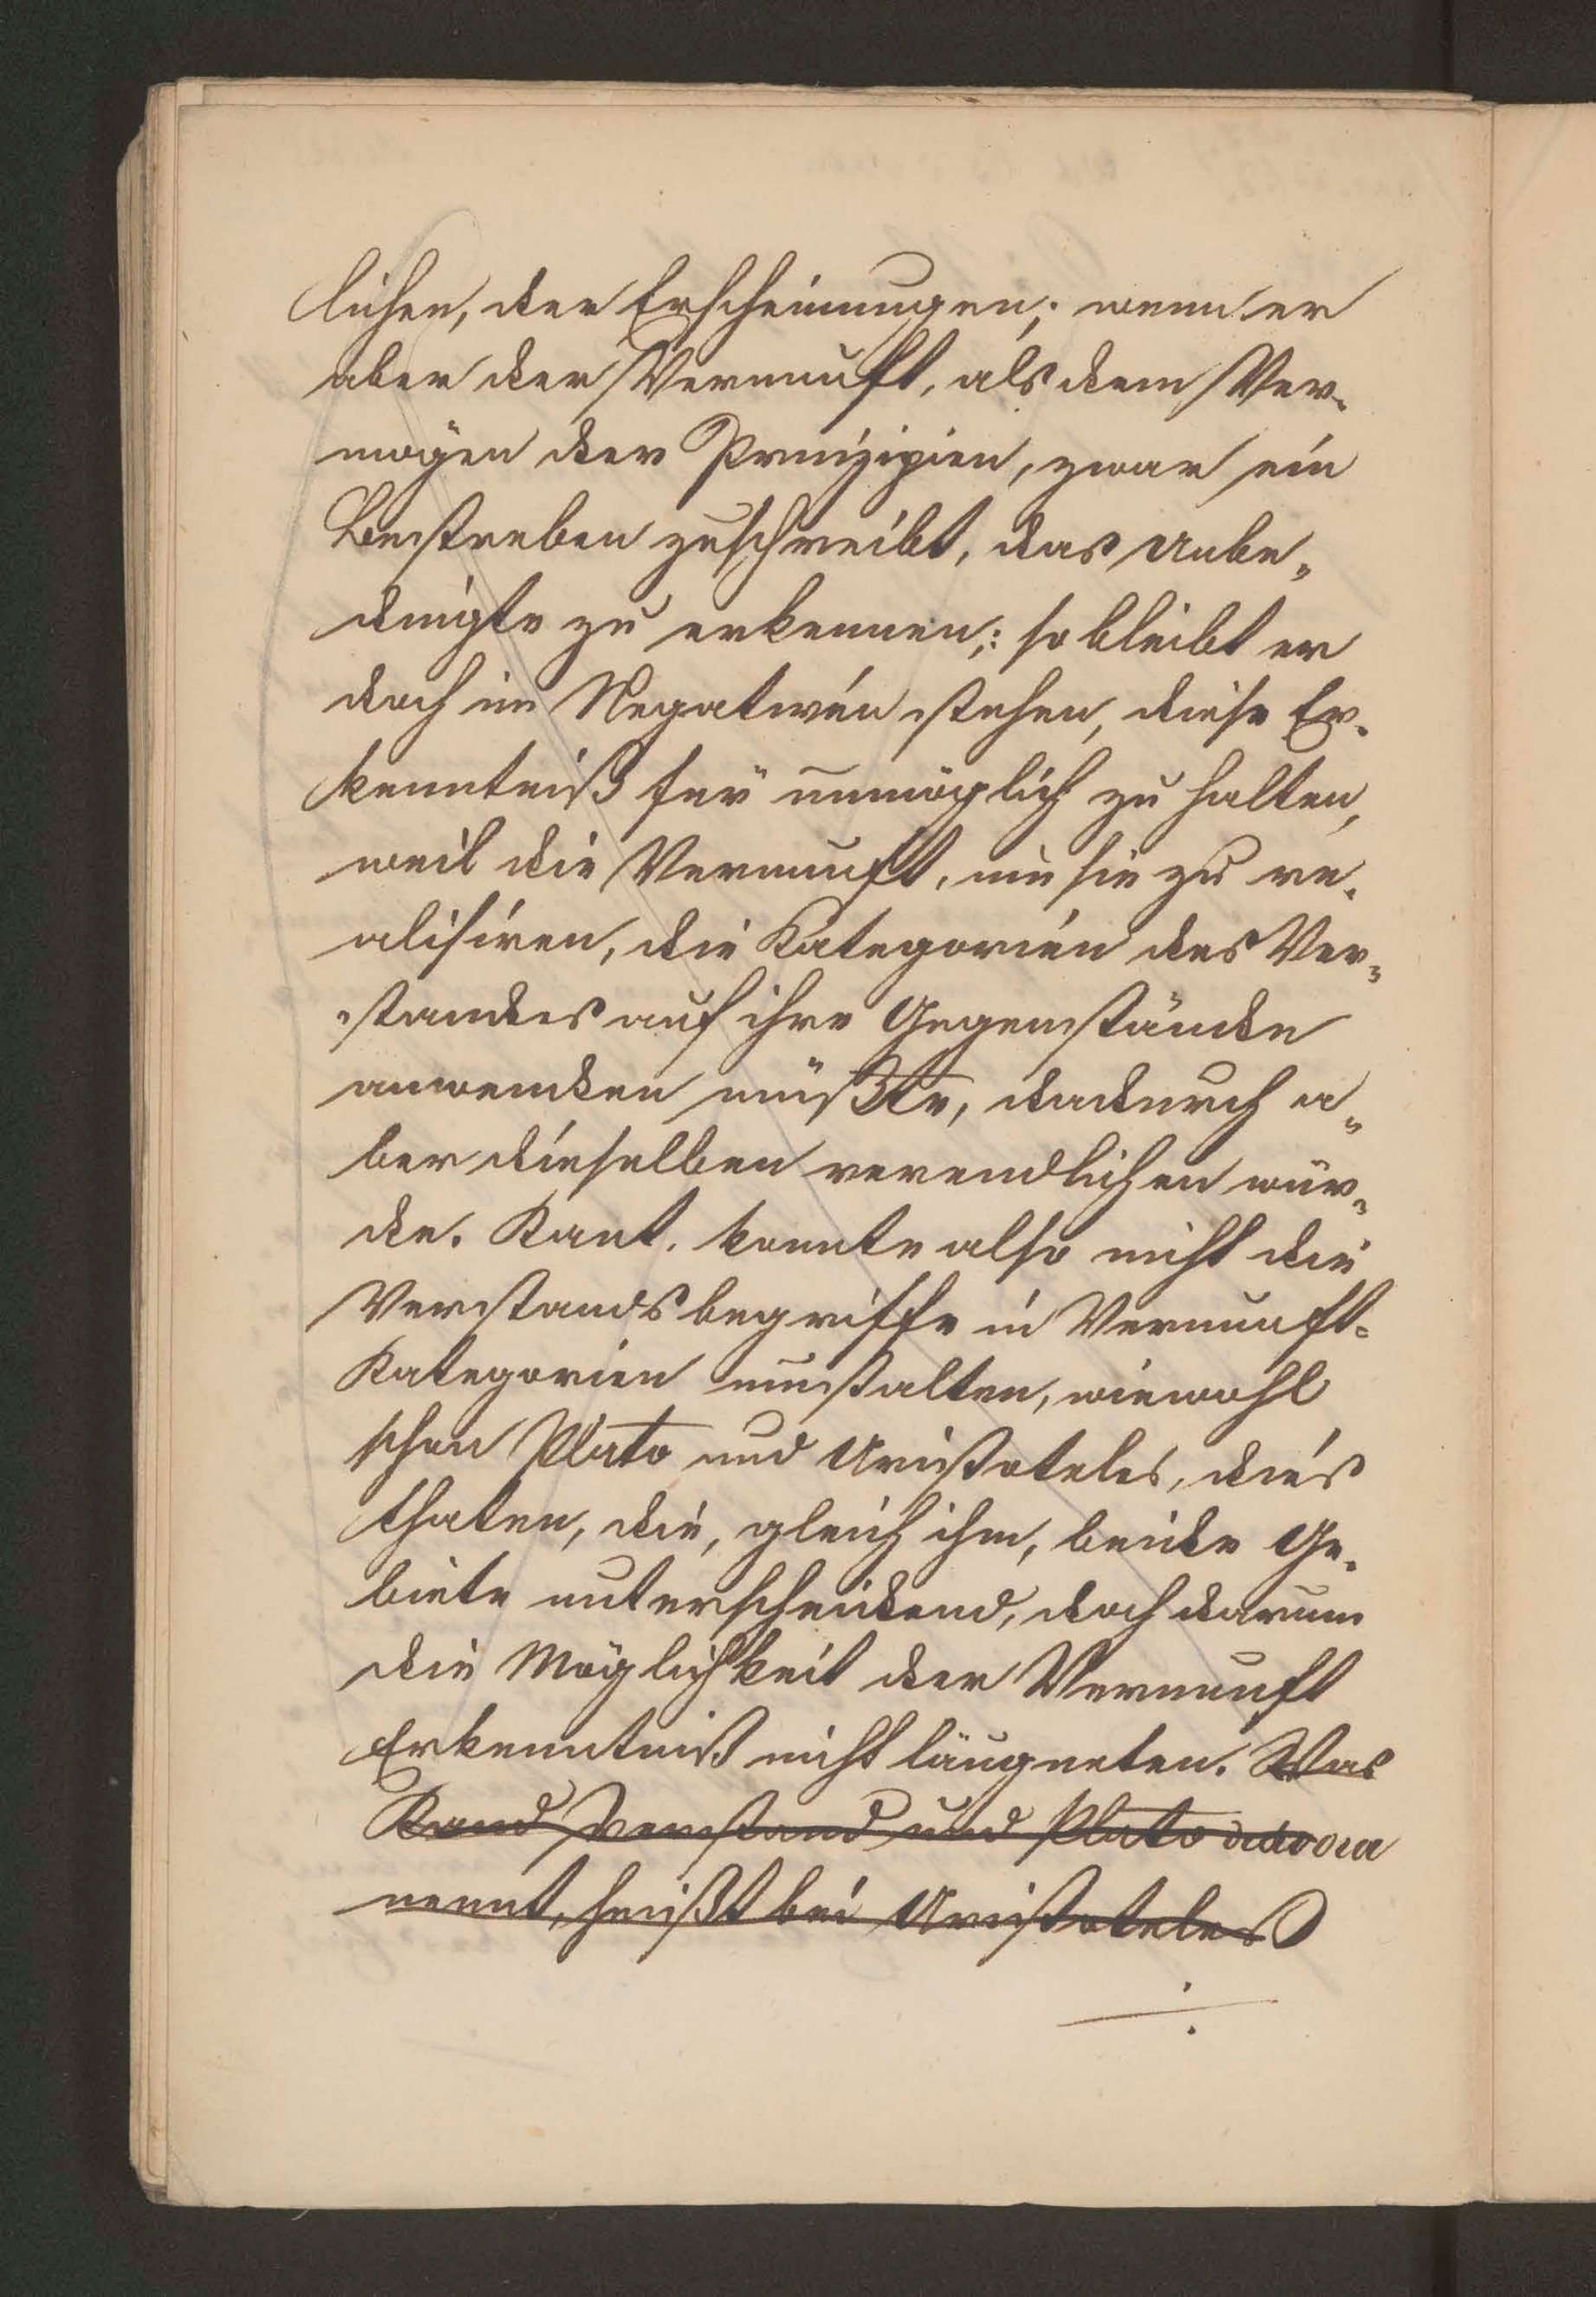 lichen, der Erscheinungen; wenn er
aber der Vernunft, als dem Ver-
mögen der Prinzipien, zwar ein
Bestreben zuschreibt, das Unbe-
dingte zu erkennen;: so bleibt er
doch im Negativen stehen, diese Er-
kenntniß für unmöglich zu halten,
weil die Vernunft, um sie zu re-
alisiren, die Kategorien des Ver-
standes auf ihre Gegenstände
anwenden müßte, dadurch a-
ber dieselben verendlichen wür-
de. Kant. konnte also nicht die
Verstandsbegriffe in Vernunft-
Kategorien umstalten, wiewohl
schon Plato und Aristoteles, dies
thaten, die, gleich ihm, beide Ge-
biete unterscheidend, doch darum
die Möglichkeit der Vernunft
Erkenntniß nicht läugneten. Was
Kand Verstand und Plato διανοια
nennt, heißt bei Aristoteles